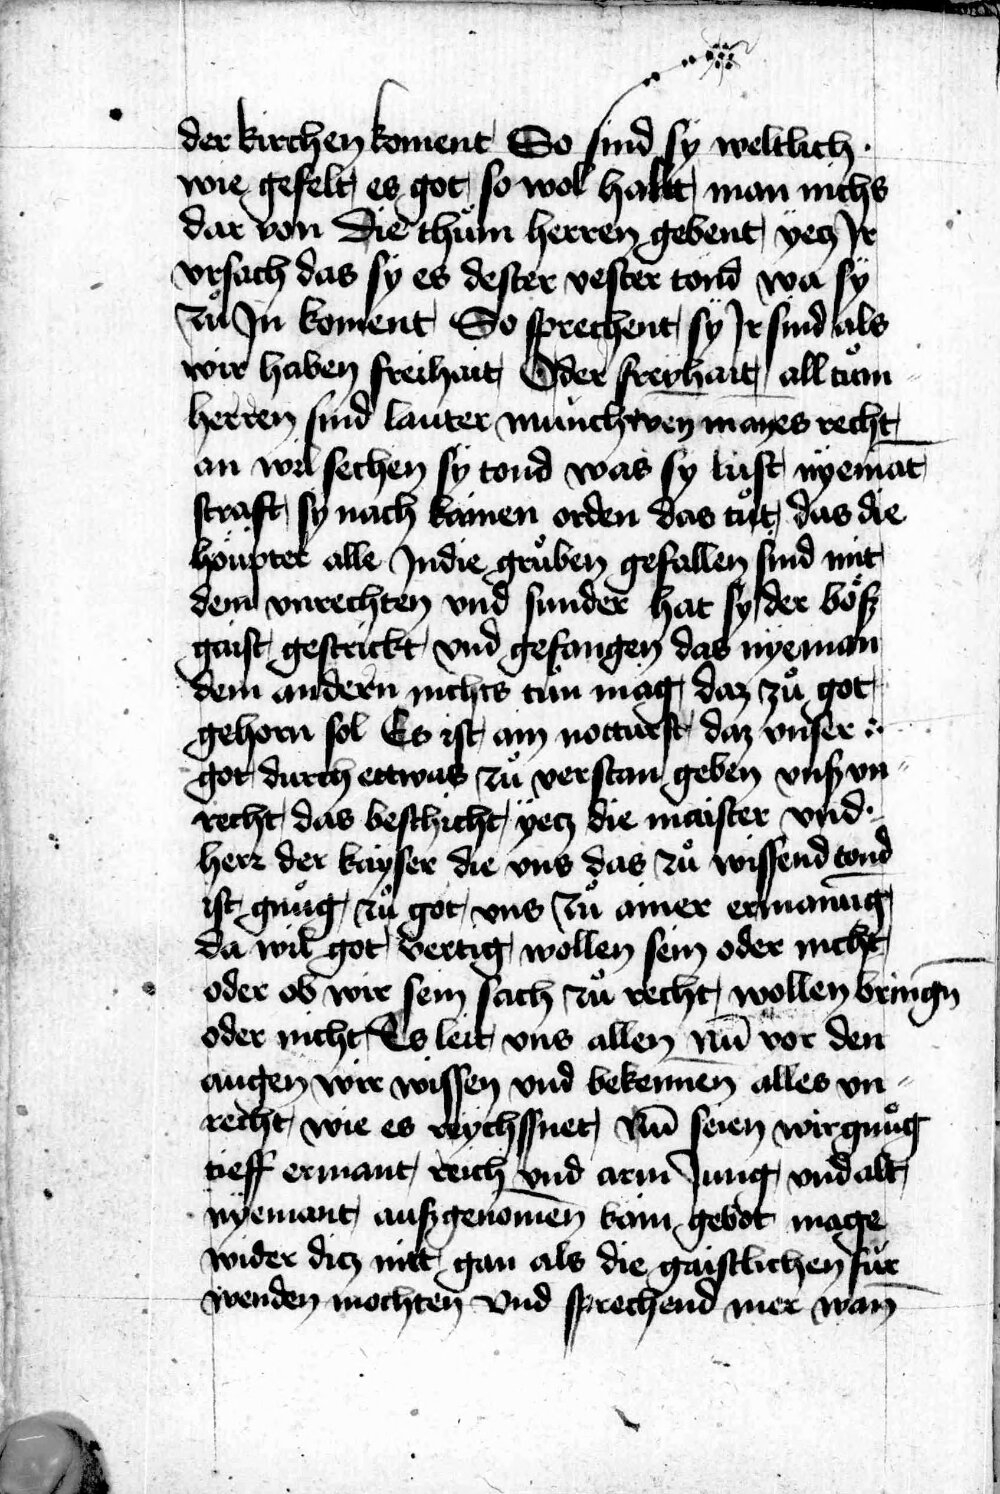 der kirchen koment So sind sy weltlich ·
wie gefelt es got so wol haltt man nichs
dar von Die thům herren gebent yetz Jr
vrsach das sy es dester vester tond wa sy
zů Jn koment So sprechent sy Jr sind als
wir haben freihait Oder freyhait all tům
herren sind lauter münch wen manes recht
an wil sechen sy tond was sy lust nyemāt
straft sy nach kainen orden das tůt das die
höupter alle Jn die grůben gefallen sind mit
dem vnrechten vnd sunder hat sy der böß
gaist gestrickt vnd gefangen das nyeman
dem andern nichts tůn mag daz zů got
gehorn sol Es ist ain notturft daz vnser
got durch ettwas zů verstan geben vnß vn
recht das beschicht yetz die maister vnd
herr der kayser die vns das zů wissend tond
ist gnůg zů got vns zů ainer ermanūg
da wil got vertig wollen sein oder nicht
oder ob wir sein sach zů recht wollen bringn̄
oder nicht Es leit vns allen nū vor den
augen wir wissen vnd bekennen alles vn
recht wie es reychssnet Nū seien wir gnůg
tieff ermant reich vnd arm Jung vnd alt
nyemant außgenomen kain gebot mage
wider ditz nitt gan als die gaistlichen für
wenden mochten Vnd sprechend mer wan̄